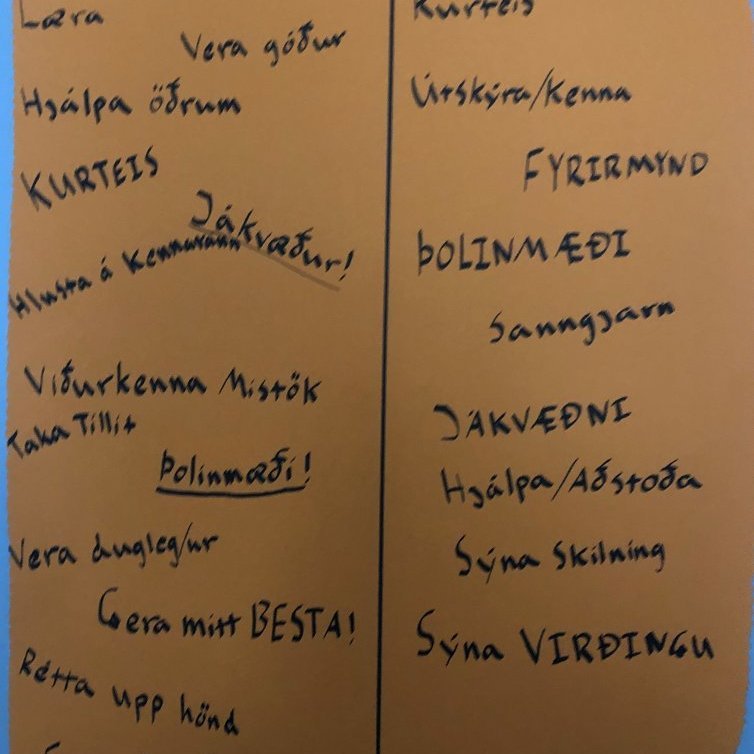 Læra
Vera góður
Hjálpa öðrum
KURTEIS
Jákvæður!
Hlusta á Kennarann
Viðurkenna Mistök
Taka Tillit
Þolinmæði!
Vera dugleg/ur
Gera mitt BESTA!
Rétta upp hönd
Kurteis
Útskýra/Kenna
FYRIRMYND
ÞOLINMÆÐI
Sanngjarn
JÁKVÆÐNI
Hjálpa/Aðstoða
Sýna Skilning
Sýna VIRÐINGU